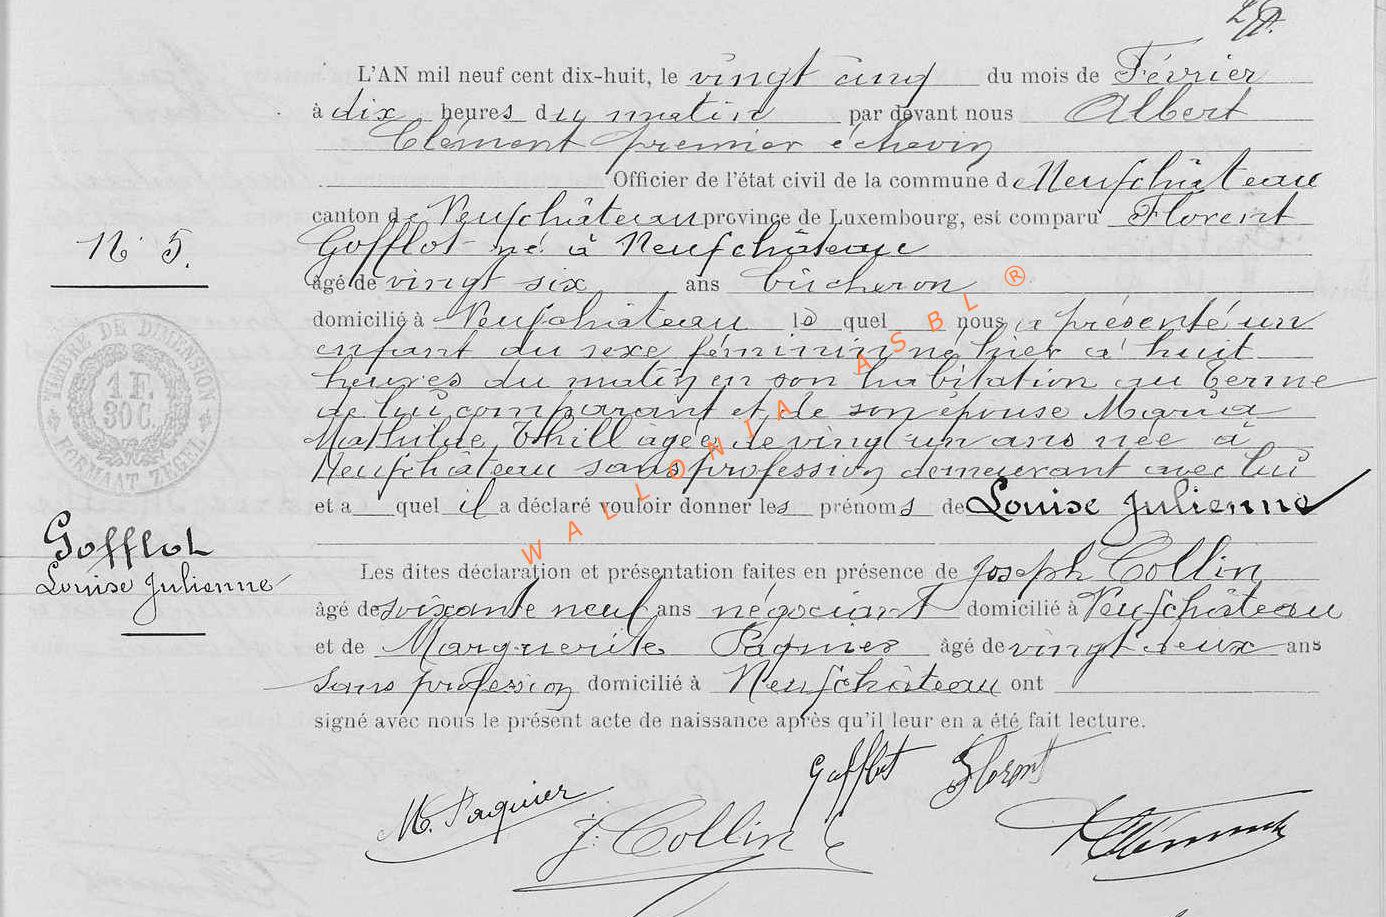 L'AN mil neuf cent dix-huit, le vingt cinq du mois de Février
à dix heures du matin par devant nous Albert
Clément premier échevin
Officier de l'état civil de la commune de Neufchâteau
canton de Neufchâteau province de Luxembourg, est comparu Florent
Gofflot né à Neufchâteau
N° 5.
âgé de vingt six ans bûcheron
domicilié à Neufchâteau le quel nous a présenté un
enfant du sexe féminin né hier à huit
heures du matin en son habitation au Terme
de lui comparant et de son épouse Maria
Mathilde Thill âgée de vingt un ans née à
Neufchâteau sans profession demeurant avec lui
et a quel il a déclaré vouloir donner les prénoms de Louise Julienne
Gofflot
Louise Julienne
Les dites déclaration et présentation faites en présence de Joseph Collin
âgé de soixante neuf ans négociant domicilié à Neufchâteau
et de Marguerite Paquier âgé de vingt deux ans
sans profession domicilié à Neufchâteau ont
signé avec nous le présent acte de naissance après qu'il leur en a été fait lecture.
Gofflot Florent
M. Paquier
J. Collin
TIMBRE DE DIMENSION
1 F.
30 C.
FORMAAT ZEGEL
WALLONIA ASBL ®